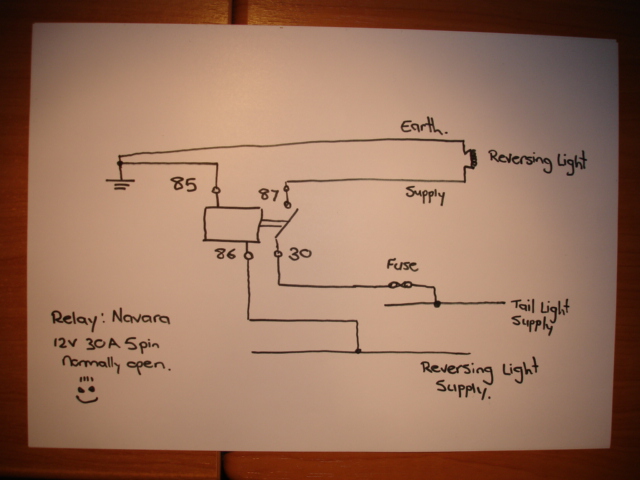 Earth.
Reversing Light
85
87
Supply
86
30
Fuse
Tail Light
Supply
Relay: Navara
12V 30A 5pin
Normally open.
Reversing Light
Supply.